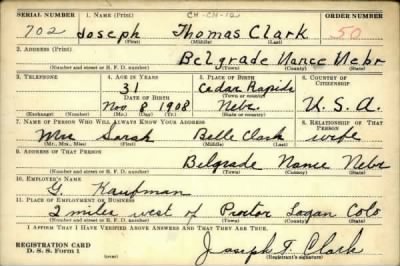 SERIAL NUMBER 1. NAME (Print) CH-CH-12 ORDER NUMBER
702 Joseph Thomas Clark 50
(First) (Middle) (Last)
2. ADDRESS (Print)
Belgrade Nance Nebr
(Number and street or R. F. D. number) (Town) (County) (State)
3. TELEPHONE 4. AGE IN YEARS 5. PLACE OF BIRTH 6. COUNTRY OF CITIZENSHIP
31 Cedar Rapids
DATE OF BIRTH (Town or county)
Nov 8 1908 Nebr. U. S. A.
(Exchange) (Number) (Mo.) (Day) (Yr.) (State or country)
7. NAME OF PERSON WHO WILL ALWAYS KNOW YOUR ADDRESS 8. RELATIONSHIP OF THAT PERSON
Mrs Sarah Belle Clark wife
(Mr., Mrs., Miss) (First) (Middle) (Last)
9. ADDRESS OF THAT PERSON
Belgrade Nance Nebr
(Number and street or R. F. D. number) (Town) (County) (State)
10. EMPLOYER'S NAME
G. Kaufman
11. PLACE OF EMPLOYMENT OR BUSINESS
2 miles west of Proctor Logan Colo
(Number and street or R. F. D. number) (Town) (County) (State)
I AFFIRM THAT I HAVE VERIFIED ABOVE ANSWERS AND THAT THEY ARE TRUE.
REGISTRATION CARD
D. S. S. Form 1
Joseph T. Clark
(Registrant's signature)